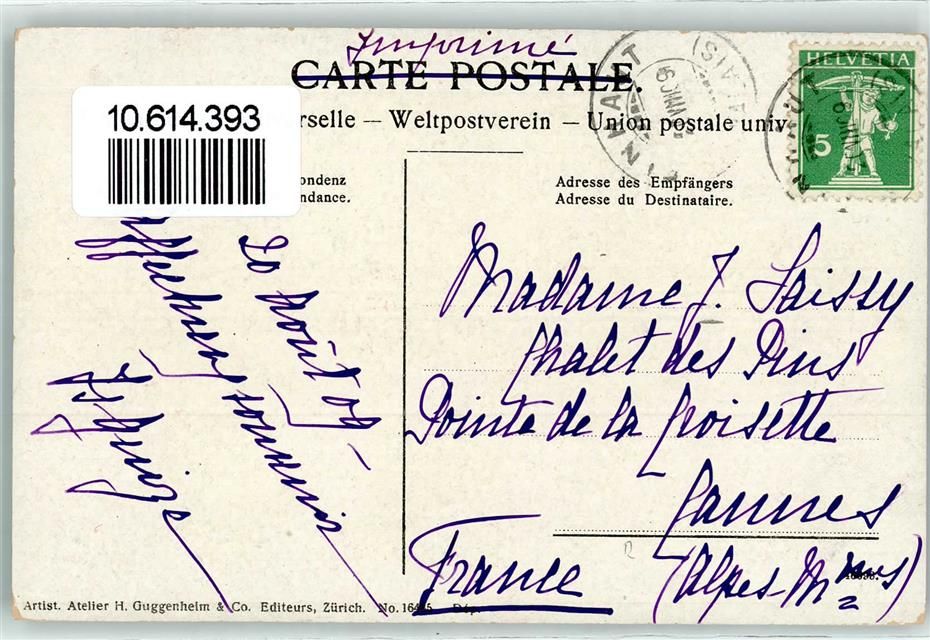 Imprimé
CARTE POSTALE.
10.614.393
rselle — Weltpostverein — Union postale univ
HELVETIA
5
ondenz
ndance.
Adresse des Empfängers
Adresse du Destinataire.
20 Août 09
souvenir
Madame J. Saissy
Chalet des Pins
Pointe de la Croisette
Cannes
France
(Alpes-Mmes)
Artist. Atelier H. Guggenheim & Co. Editeurs, Zürich. No. Dép.